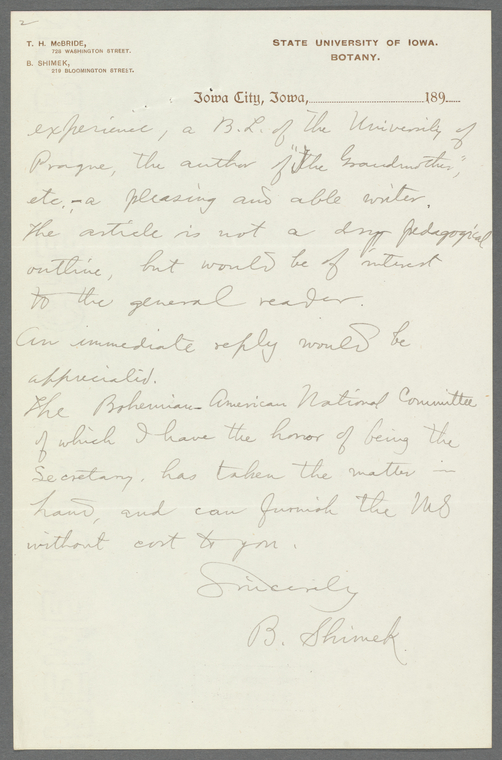 2
T. H. McBRIDE,
728 WASHINGTON STREET.
B. SHIMEK,
219 BLOOMINGTON STREET.
STATE UNIVERSITY OF IOWA.
BOTANY.
Iowa City, Iowa, 189
experience, a B.L. of the University of
Prague, the author of "The Grandmother,"
etc. - a pleasing and able writer.
The article is not a dry pedagogical
outline, but would be of interest
to the general reader.
An immediate reply would be
appreciated.
The Bohemian-American National Committee
of which I have the honor of being the
Secretary, has taken the matter in
hand, and can furnish the MS
without cost to you.
Sincerely
B. Shimek